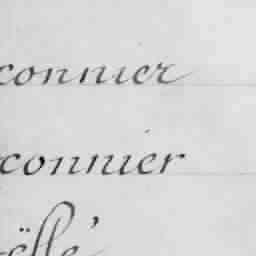 connier
connier
ëlle'